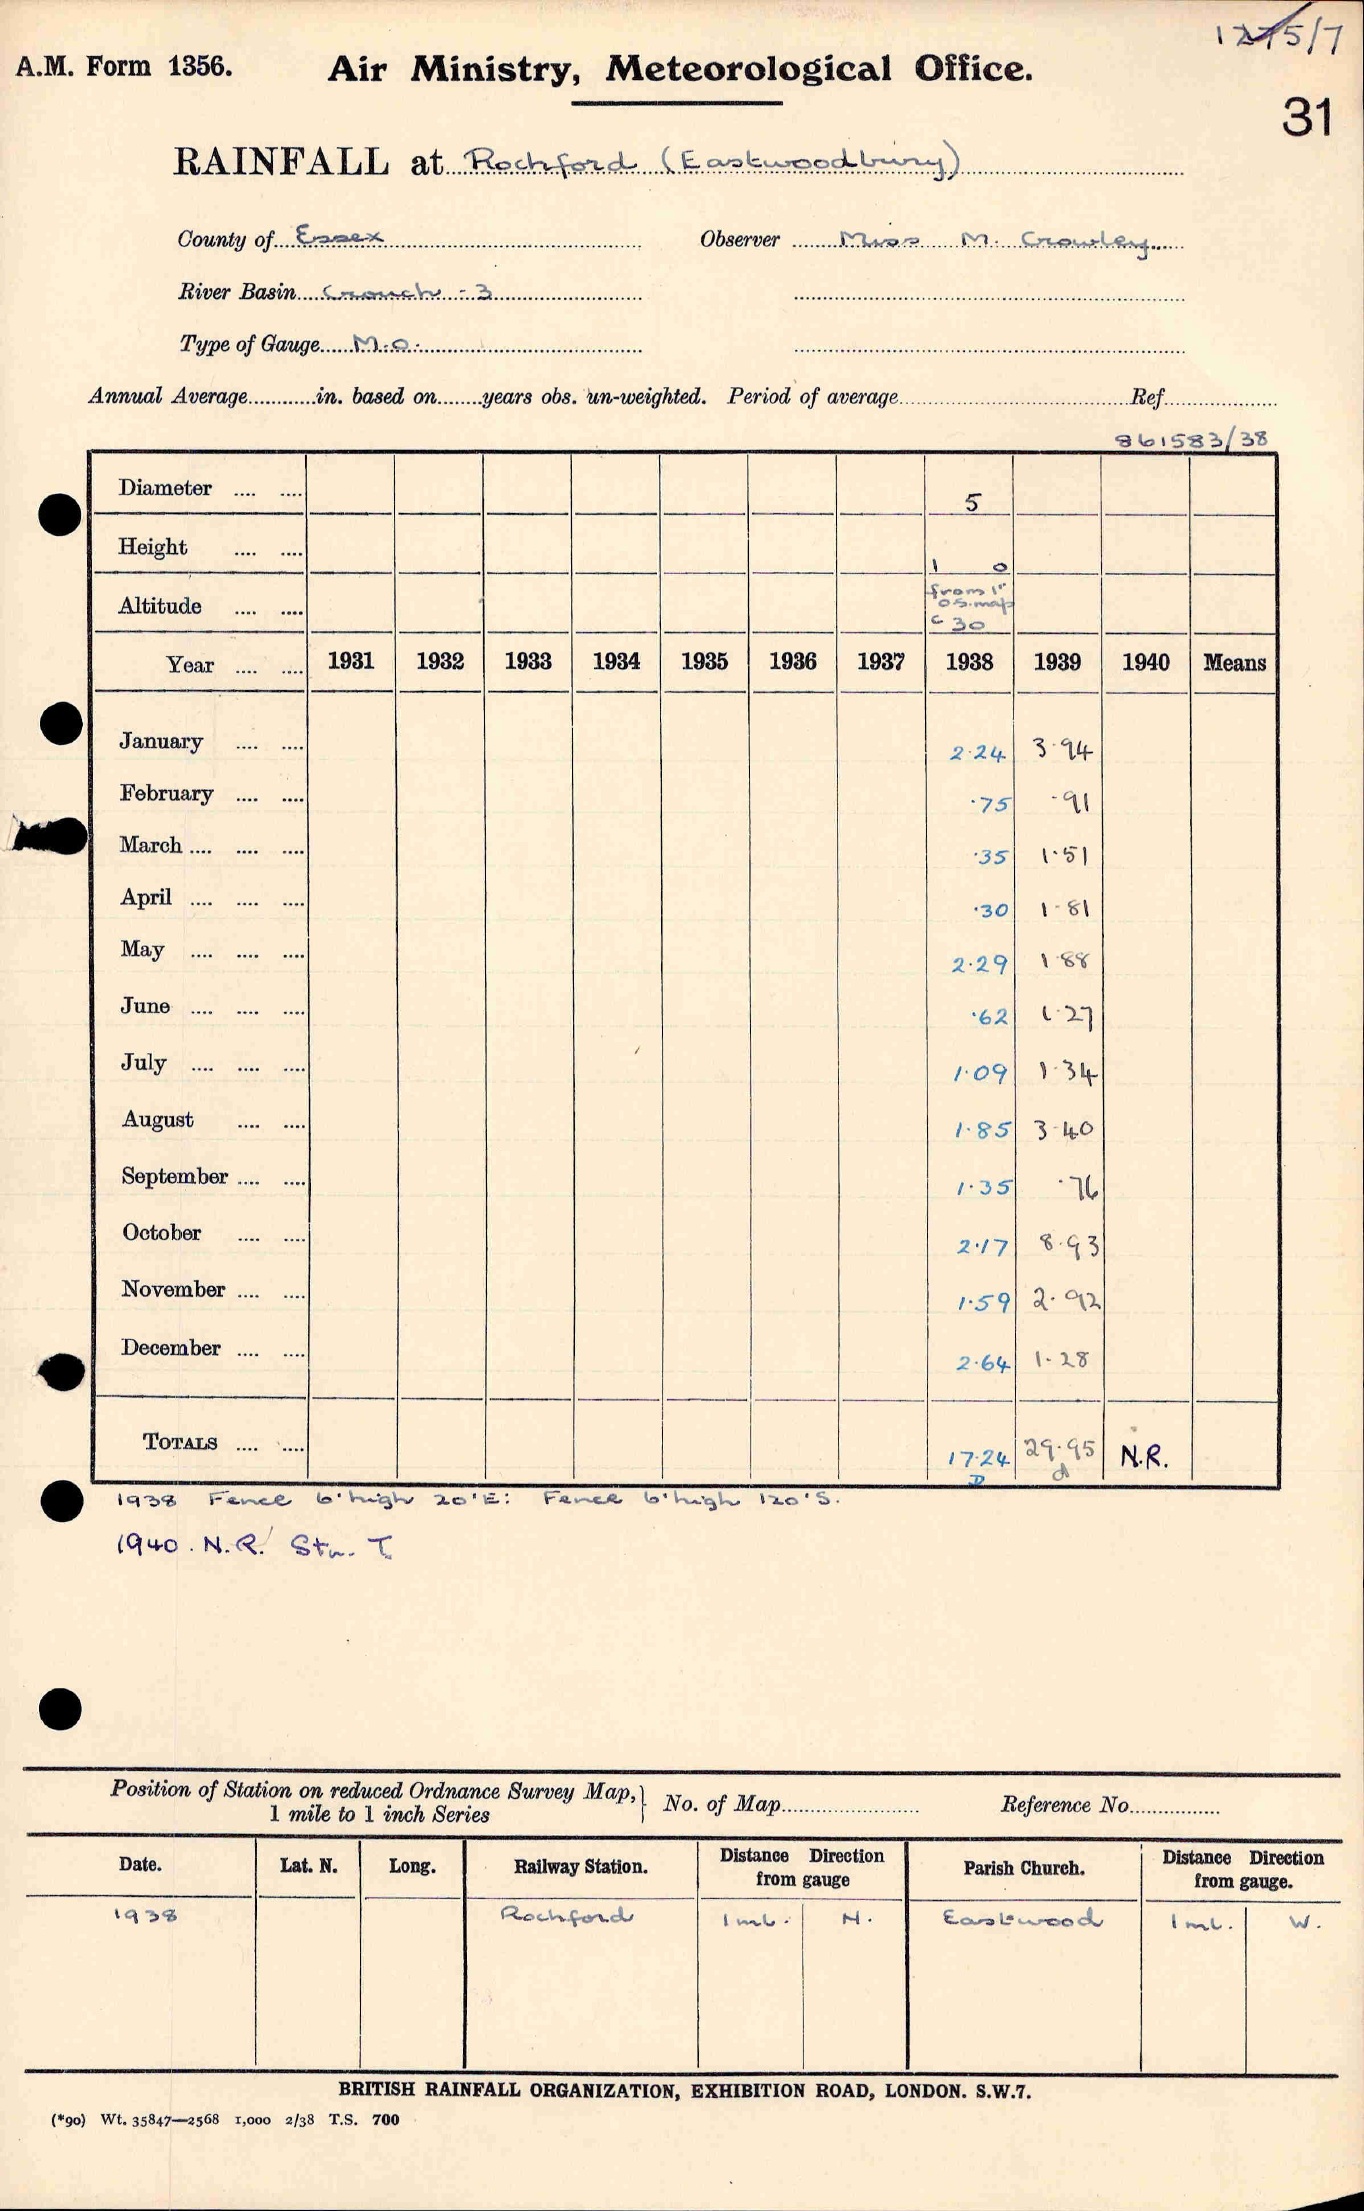 1275/7
A.M. Form 1356. Air Ministry, Meteorological Office.
31
RAINFALL at Rochford (Eastwoodbury)
County of Essex Observer Miss M. Crowley
River Basin Crouch - 3
Type of Gauge M.O.
Annual Average in. based on years obs. un-weighted. Period of average Ref
861583/38
Diameter 5
Height 1 0
Altitude from 1" O.S. map c 30
Year 1931 1932 1933 1934 1935 1936 1937 1938 1939 1940 Means
January 2.24 3.94
February .75 .91
March .35 1.51
April .30 1.81
May 2.29 1.88
June .62 1.27
July 1.09 1.34
August 1.85 3.40
September 1.35 .76
October 2.17 8.93
November 1.59 2.92
December 2.64 1.28
TOTALS 17.24 29.95 N.R.
D d
1938 Fence 6' high 20' E: Fence 6' high 120' S.
1940. N.R. Stn. T
Position of Station on reduced Ordnance Survey Map, 1 mile to 1 inch Series } No. of Map Reference No.
Date. Lat. N. Long. Railway Station. Distance Direction from gauge Parish Church. Distance Direction from gauge.
1938 Rochford 1 ml. N. Eastwood 1 ml. W.
BRITISH RAINFALL ORGANIZATION, EXHIBITION ROAD, LONDON. S.W.7.
(*90) Wt. 35847—2568 1,000 2/38 T.S. 700